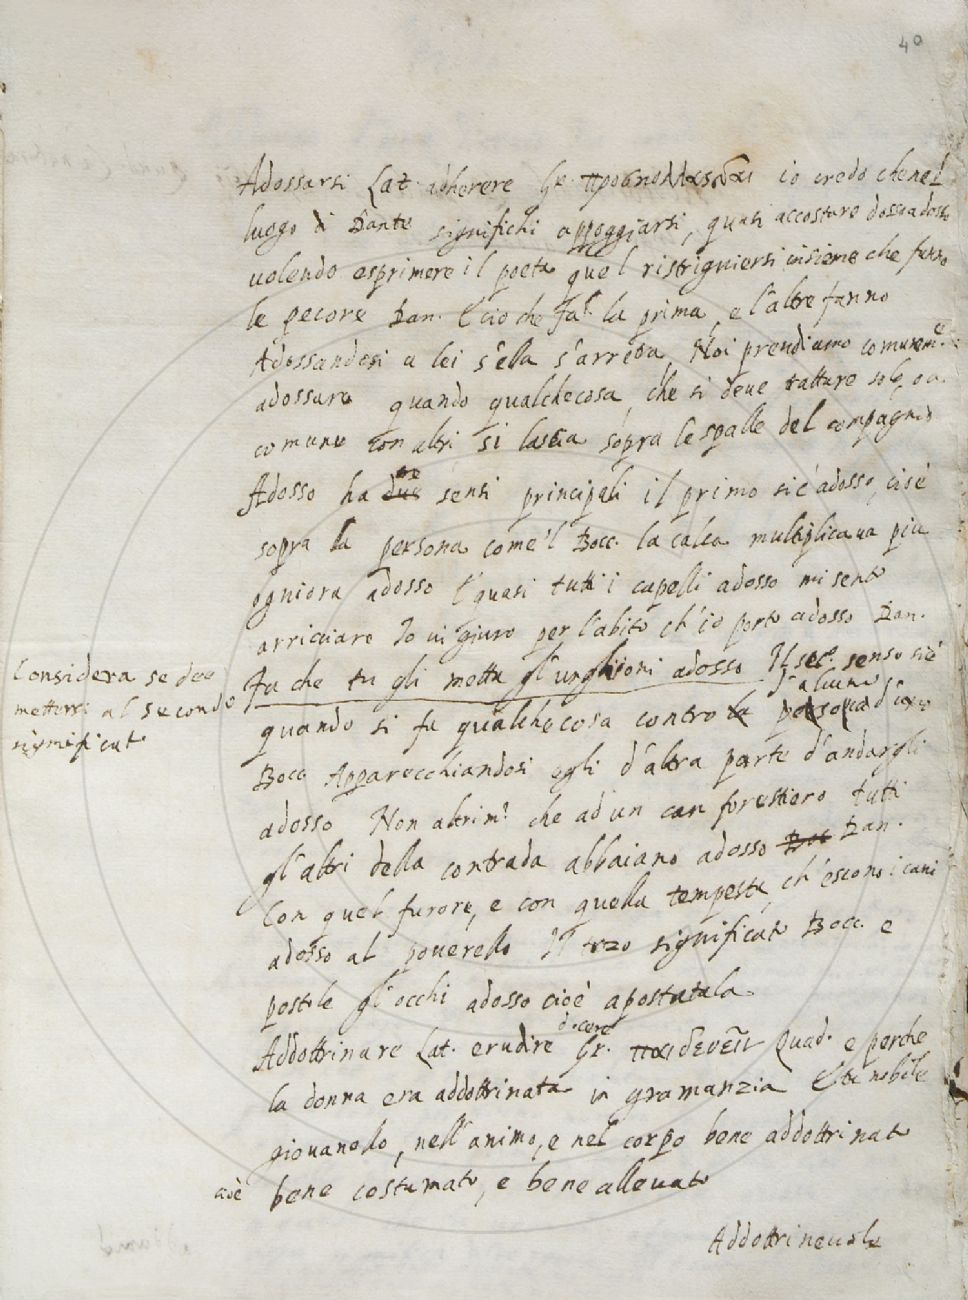 40
Adossarsi Lat. adherere Gr. προσκολλᾶσθαι io credo che nel
luogo di Dante significhi appoggiarsi, quasi accostare dosso a dosso
uolendo esprimere il poeta quel ristrigniersi insieme che fanno
le pecore Dan. E cio che fa la prima, e l'altre fanno
Adossandosi a lei s'ella s'arresta, Noi prendiamo comunem.te
adossare quando qualche cosa, che si deue trattare
comune con altri si lascia sopra le spalle del compagnio
Adosso ha tre sensi principali il primo si è adosso, cioè
sopra la persona come 'l Bocc. la calca multiplicaua piu
ogniora adosso E quasi tutti i capelli adosso mi sento
arricciare Io ui giuro per l'abito ch'io porto adosso Dan.
Fa che tu gli metta gl'unghioni adosso Il sec.º senso si è
Considera se dee
mettersi al secondo
significato
quando si fa qualche cosa contro ad alcuno
Bocc. Apparecchiandosi egli d'altra parte d'andargli
adosso Non altrim.ti che ad un can forestiero tutti
gl'altri della contrada abbaiano adosso Dan.
Con quel furore, e con quella tempesta, ch'escono i cani
adosso al pouerello Il terzo significato Bocc. e
postole gl'occhi adosso cioè apostatala
Addottrinare Lat. erudire docere Gr. παιδεύειν Quad. e perche
la donna era addottrinata in gramanzia Era nobile
giouanello, nell'animo, e nel corpo bene addottrinato
cioè bene costumato, e bene alleuato
Addottrineuole